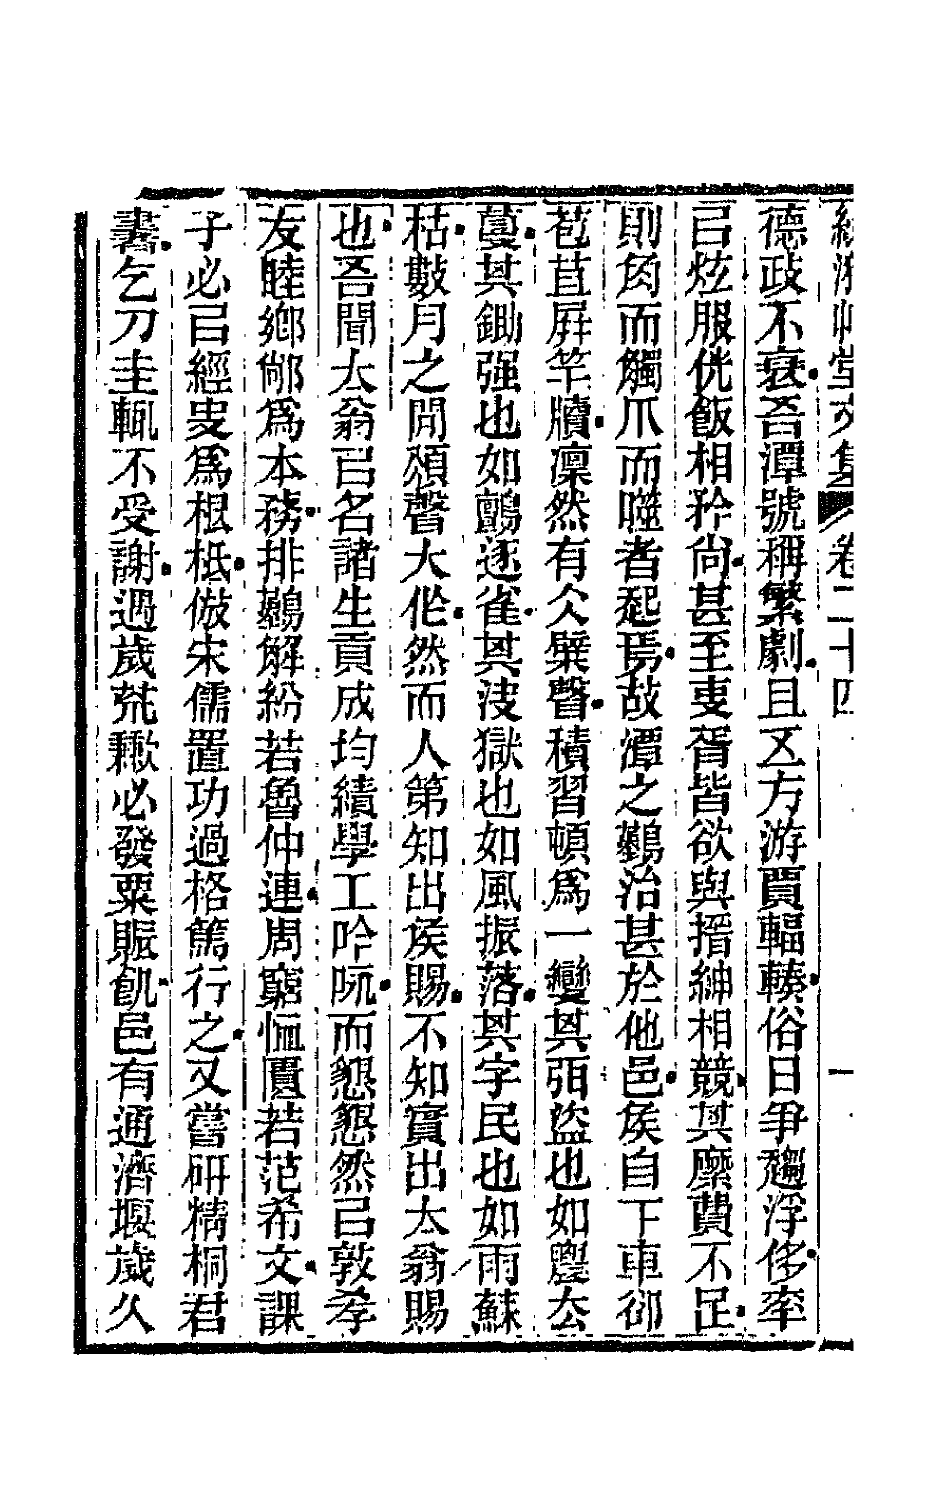 綠漪艸堂文集　卷二十四　一
德政不衰吾潭號稱繁劇且五方游賈輻輳俗日爭趨浮侈率
㠯炫服侊飯相矜尚甚至吏胥皆欲與搢紳相競其糜費不足
則角而觸爪而噬者起焉故潭之囏治甚於他邑矦自下車卻
苞苴屛竿牘凜然有仌檗聲積習頓爲一變其弭盜也如農去
蔓其鋤强也如鸇逐雀其決獄也如風振落其字民也如雨蘇
枯數月之閒頌聲大作然而人第知出矦賜不知實出太翁賜
也吾聞太翁㠯名諸生貢成均績學工吟㕧而懇懇然㠯敦孝
友睦鄉鄰爲本務排囏解紛若魯仲連周窮恤匱若范希文課
子必㠯經史爲根柢倣宋儒置功過格篤行之又嘗研精桐君
書乞刀圭輒不受謝遇歲荒歉必發粟賑飢邑有通濟堰歲久